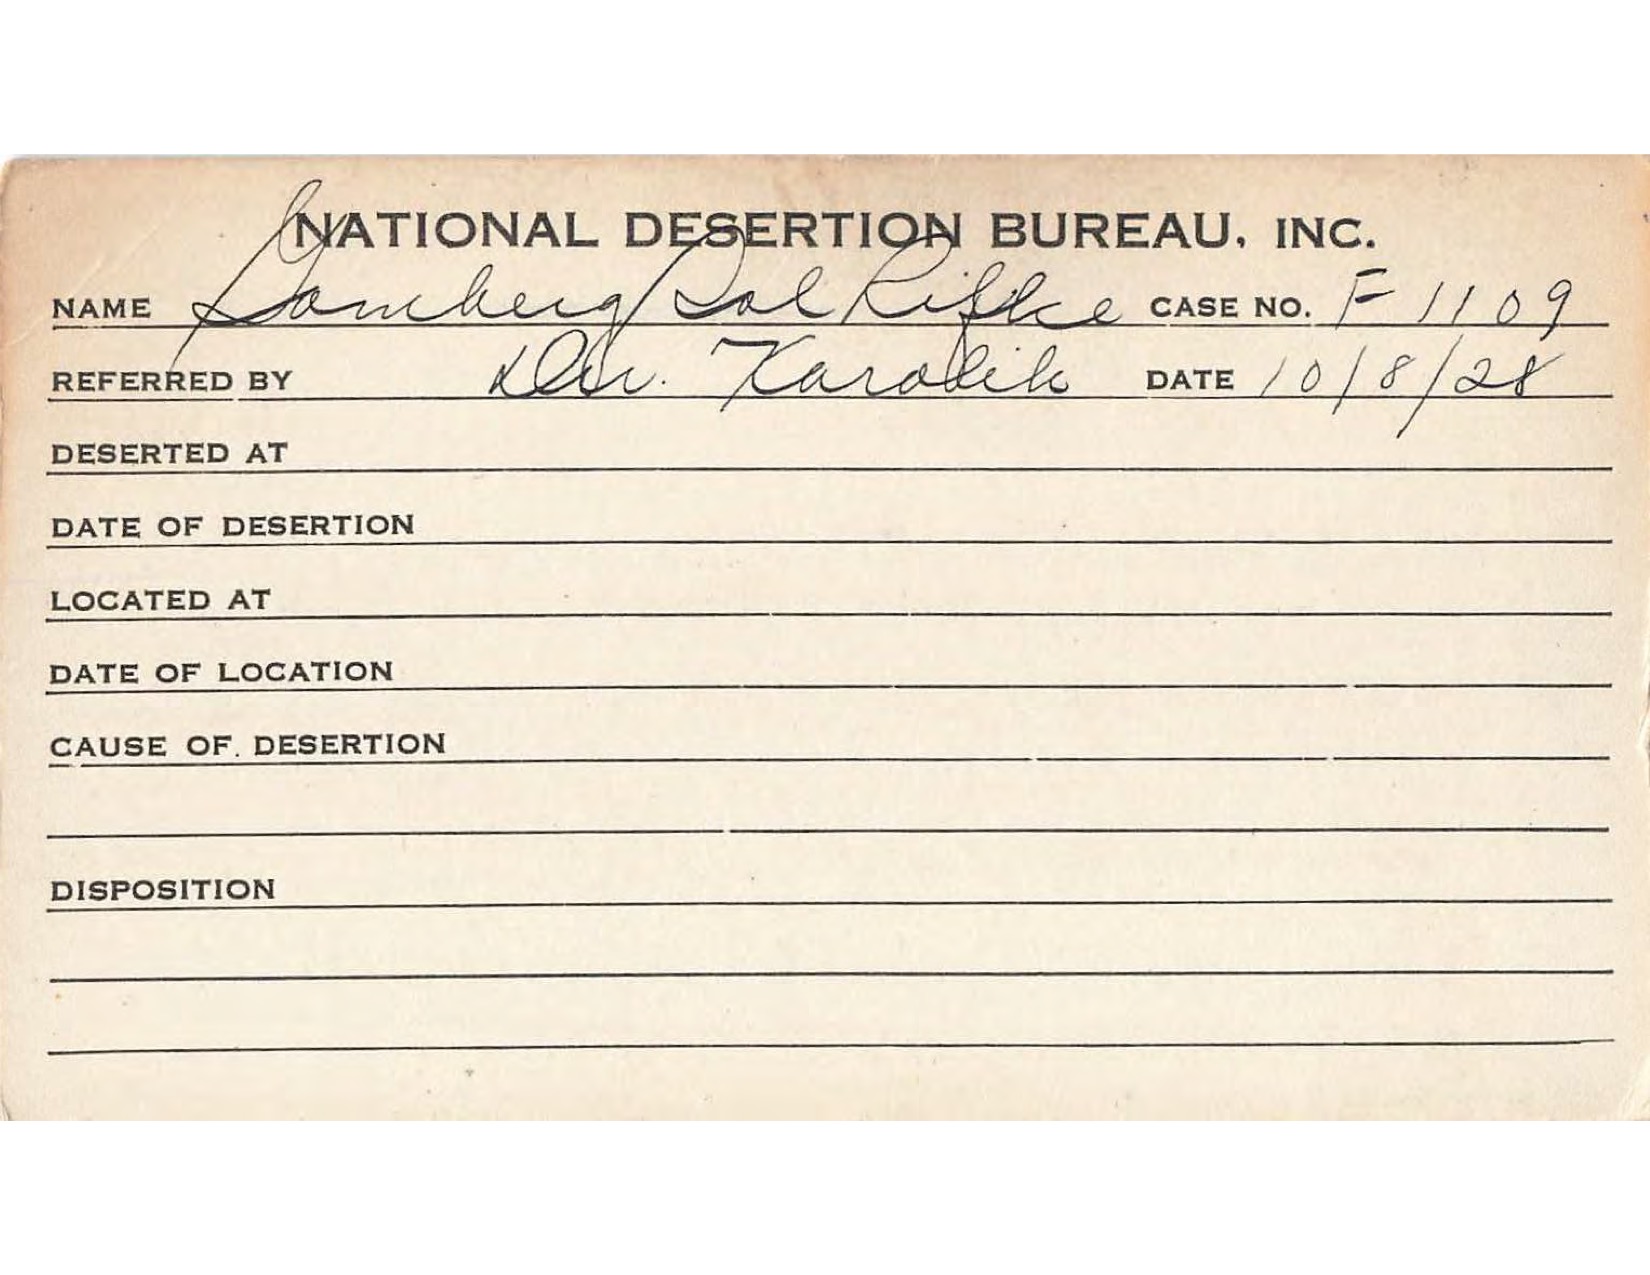 NATIONAL DESERTION BUREAU, INC.
NAME Gomberg Sol Rifke CASE NO. F 1109
REFERRED BY Dr. Karolik DATE 10/8/28
DESERTED AT
DATE OF DESERTION
LOCATED AT
DATE OF LOCATION
CAUSE OF DESERTION
DISPOSITION